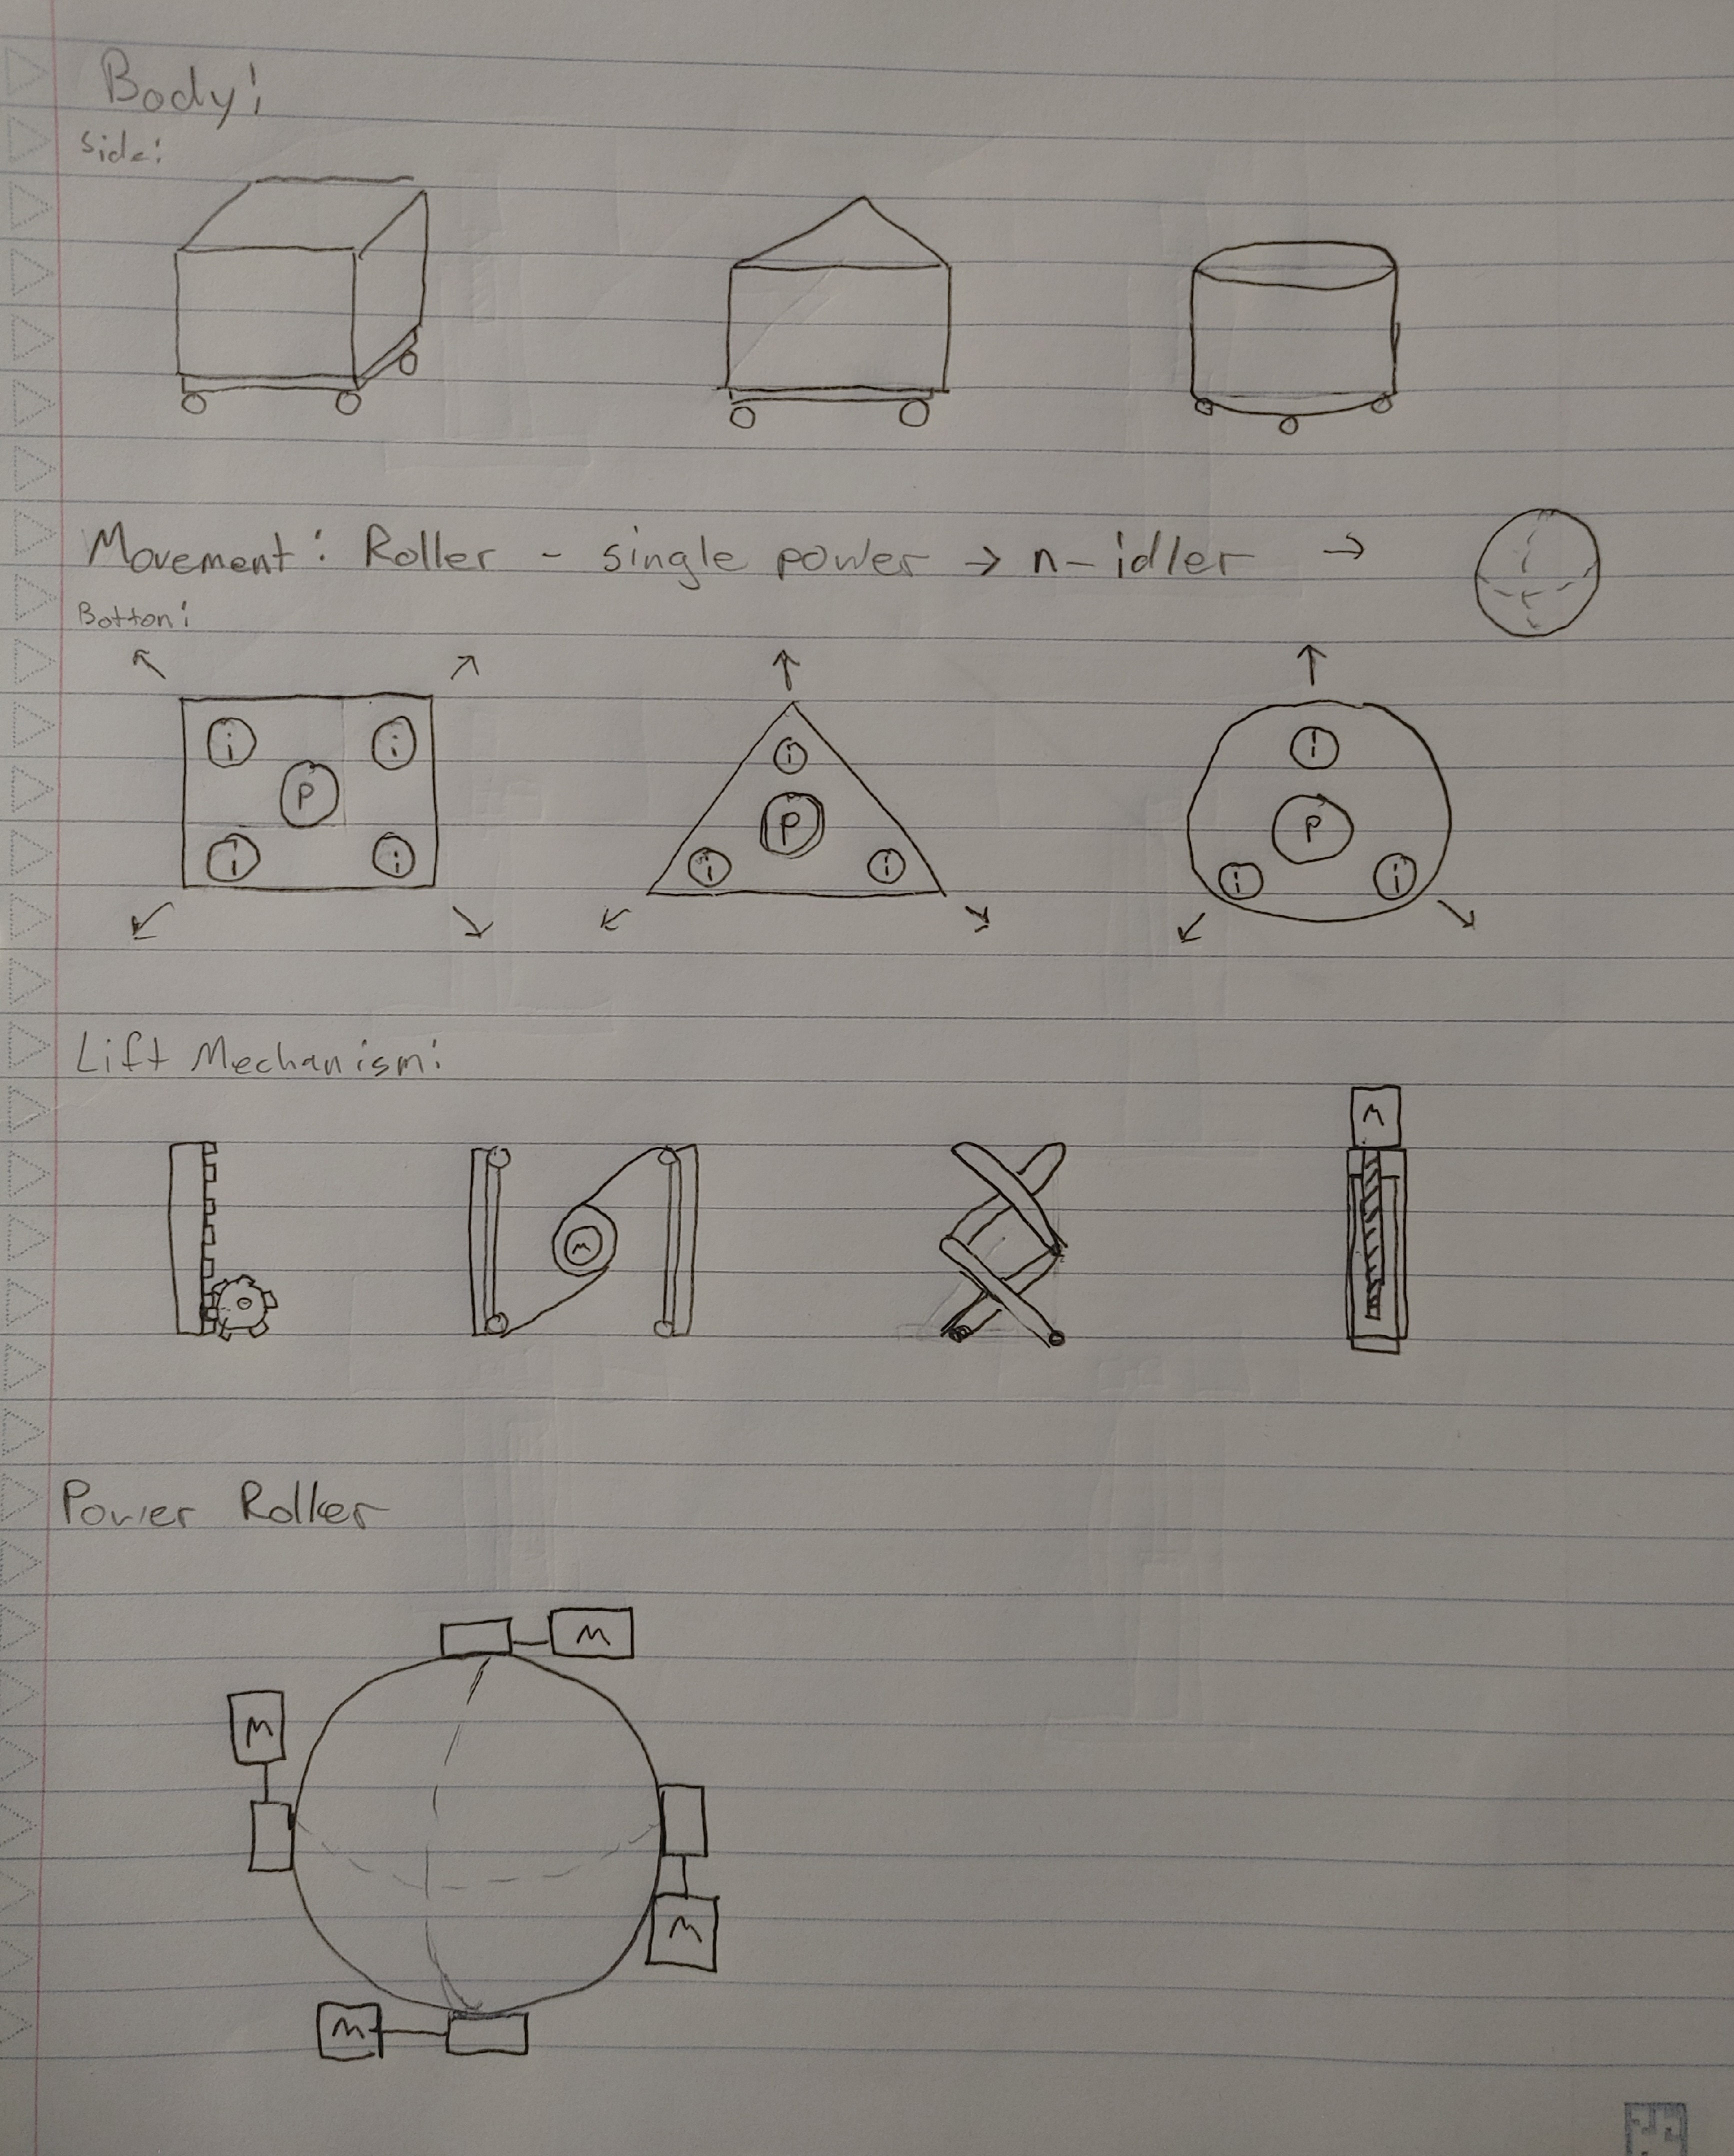 Body:
Side:
Movement: Roller - single power → n-idler →
Botton:
i i i i
P P P
i i i i i i
Lift Mechanism:
M
M
Power Roller
M
M
M
M